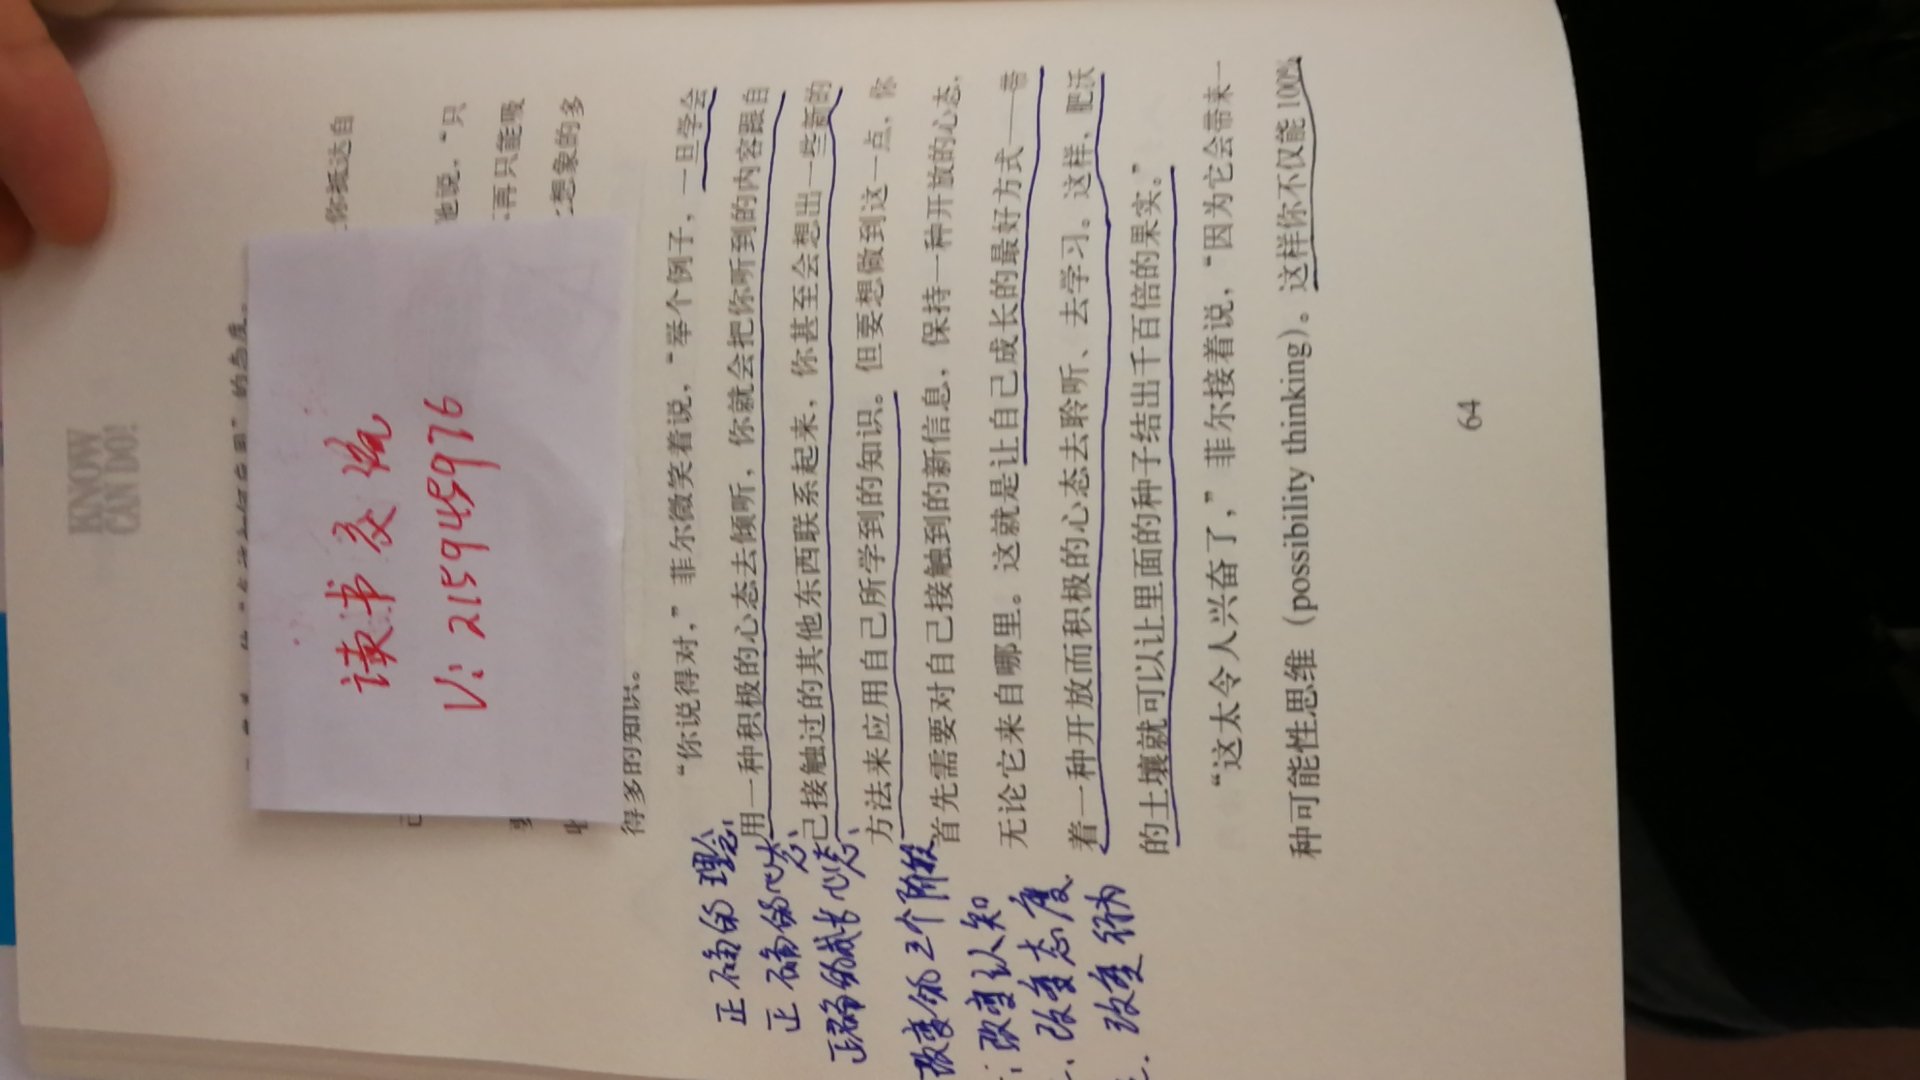 KNOW
CAN DO!
读书交流
V: 215945976
你抵达自
他说，“只
再只能吸
想象的多
得多的知识。
“你说得对，”菲尔微笑着说，“举个例子，一旦学会
用一种积极的心态去倾听，你就会把你听到的内容跟自
己接触过的其他东西联系起来，你甚至会想出一些新的
方法来应用自己所学到的知识。但要想做到这一点，你
首先需要对自己接触到的新信息，保持一种开放的心态，
无论它来自哪里。这就是让自己成长的最好方式——带
着一种开放而积极的心态去聆听、去学习。这样，肥沃
的土壤就可以让里面的种子结出千百倍的果实。”
“这太令人兴奋了，”菲尔接着说，“因为它会带来一
种可能性思维（possibility thinking）。这样你不仅能100%
64
正确的理念
正确的心态
正确的成长心态
改变的三个阶段
改变认知
改变态度
改变行为